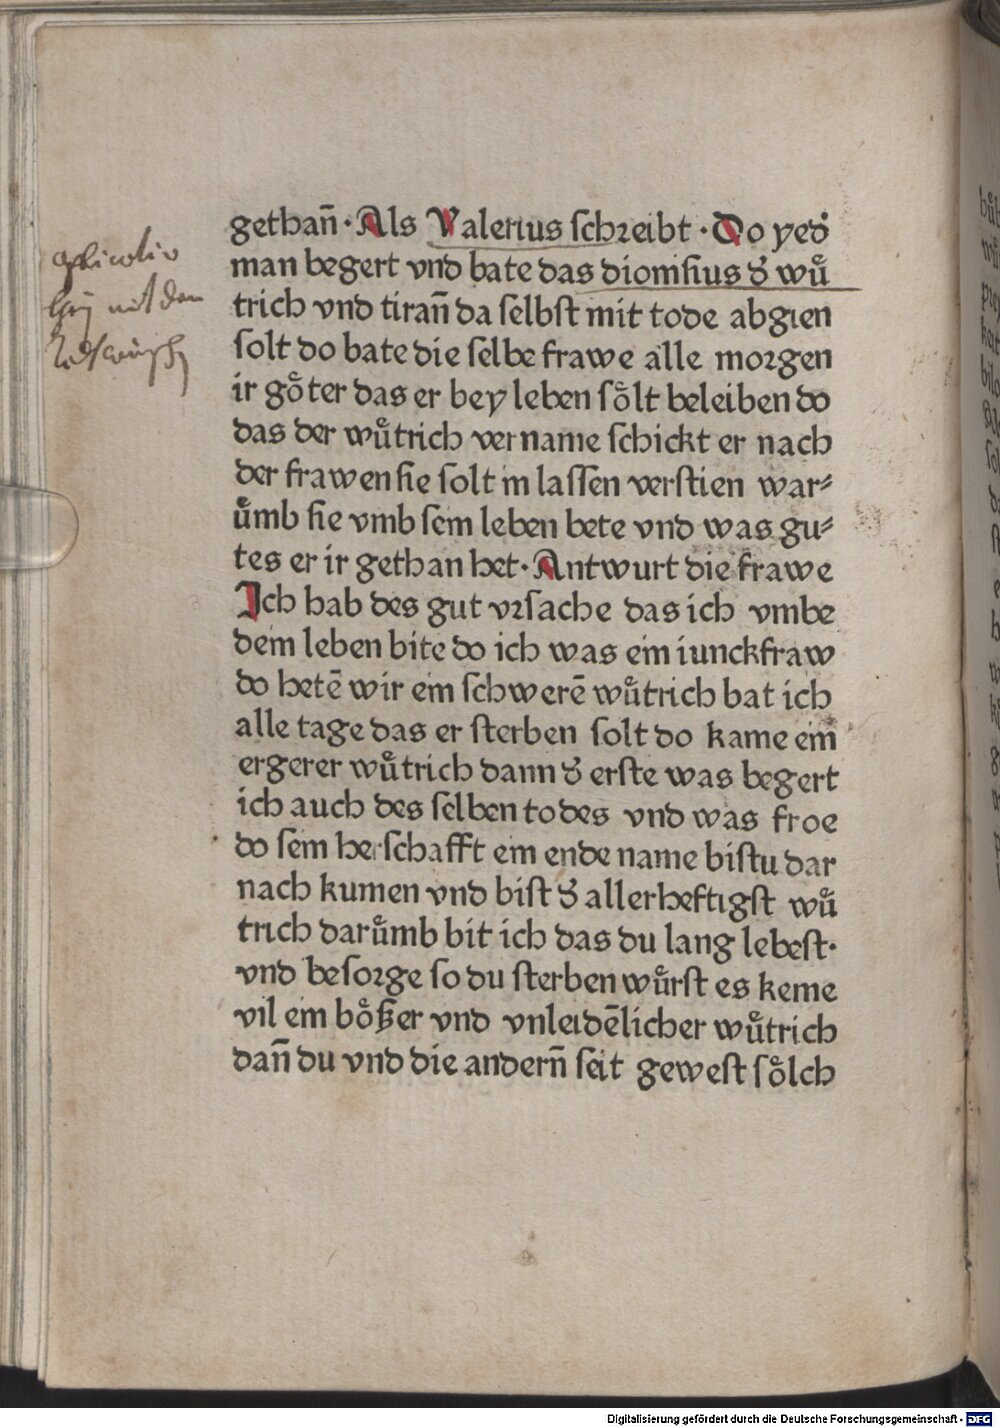 gethan̄ · Als Valerius schreibt · Do yed'
man begert vnd bate das dionisius d' wuͤ
trich vnd tiran̄ da selbst mit tode abgien
solt do bate die selbe frawe alle morgen
ir goͤter das er bey leben soͤlt beleiben do
das der wuͤtrich vername schickt er nach
der frawen sie solt in lassen verstien war⸗
uͤmb sie vmb sein leben bete vnd was gu⸗
tes er ir gethan het · Antwurt die frawe
Ich hab des gut vrsache das ich vmbe
dein leben bite do ich was ein iunckfraw
do hetē wir ein schwerē wuͤtrich bat ich
alle tage das er sterben solt do kame ein
ergerer wuͤtrich dann d' erste was begert
ich auch des selben todes vnd was froe
do sein herschafft ein ende name bistu dar
nach kumen vnd bist d' allerheftigst wuͤ
trich daruͤmb bit ich das du lang lebest ·
vnd besorge so du sterben wuͤrst es keme
vil ein boͤßer vnd vnleidēlicher wuͤtrich
dan̄ du vnd die andern̄ seit gewest soͤlch
Digitalisierung gefördert durch die Deutsche Forschungsgemeinschaft - DFG